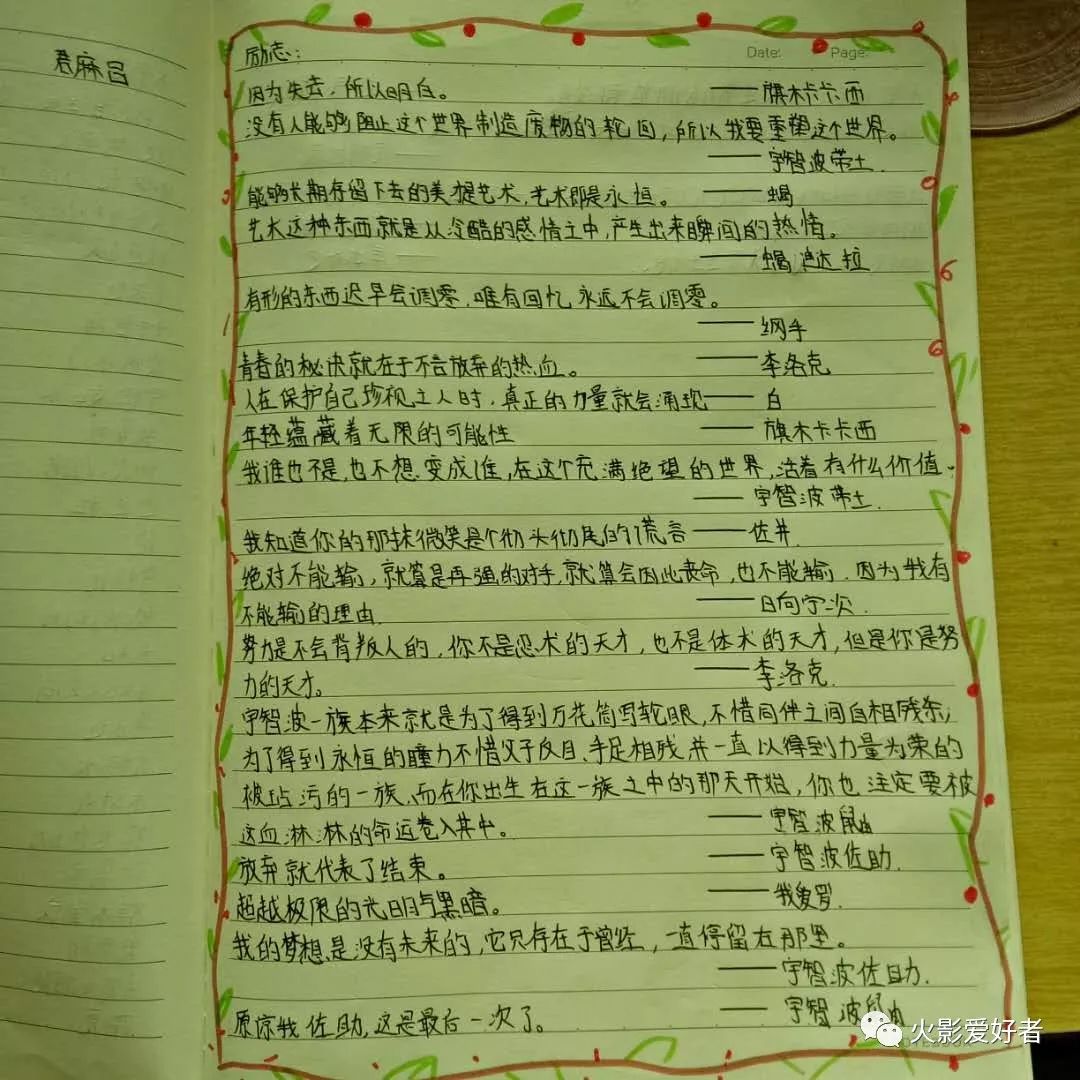 君麻吕
励志:
Date:
Page:
因为失去，所以明白。 —— 旗木卡卡西
没有人能够阻止这个世界制造废物的轮回，所以我要重塑这个世界。
—— 宇智波带土.
能够长期存留下去的美提艺术,艺术即是永恒。 —— 蝎
艺术这种东西就是从冷酷的感情之中,产生出来瞬间的热情。
—— 蝎 迪达拉
有形的东西迟早会调零,唯有回忆永远不会调零。
—— 纲手
青春的秘诀就在于不言放弃的热血。 —— 李洛克
人在保护自己珍视之人时,真正的力量就会涌现 —— 白
年轻蕴藏着无限的可能性 —— 旗木卡卡西
我谁也不是,也不想变成谁,在这个充满绝望的世界,活着有什么价值.
—— 宇智波带土.
我知道你的那抹微笑是个彻头彻尾的谎言 —— 佐井
绝对不能输,就算是再强的对手,就算会因此丧命,也不能输.因为我有
不能输的理由. —— 日向宁次.
努力是不会背叛人的,你不是忍术的天才,也不是体术的天才,但是你是努
力的天才。 —— 李洛克.
宇智波一族本来就是为了得到万花筒写轮眼,不惜同伴之间自相残杀;
为了得到永恒的瞳力不惜父子反目、手足相残,并一直以得到力量为荣的
被玷污的一族,而在你出生在这一族之中的那天开始,你也注定要被
这血淋淋的命运卷入其中。 —— 宇智波鼬
放弃就代表了结束。 —— 宇智波佐助.
超越极限的光明与黑暗。 —— 我爱罗.
我的梦想是没有未来的,它只存在于曾经,一直停留在那里。
—— 宇智波佐助.
原谅我佐助,这是最后一次了。 —— 宇智波鼬
火影爱好者